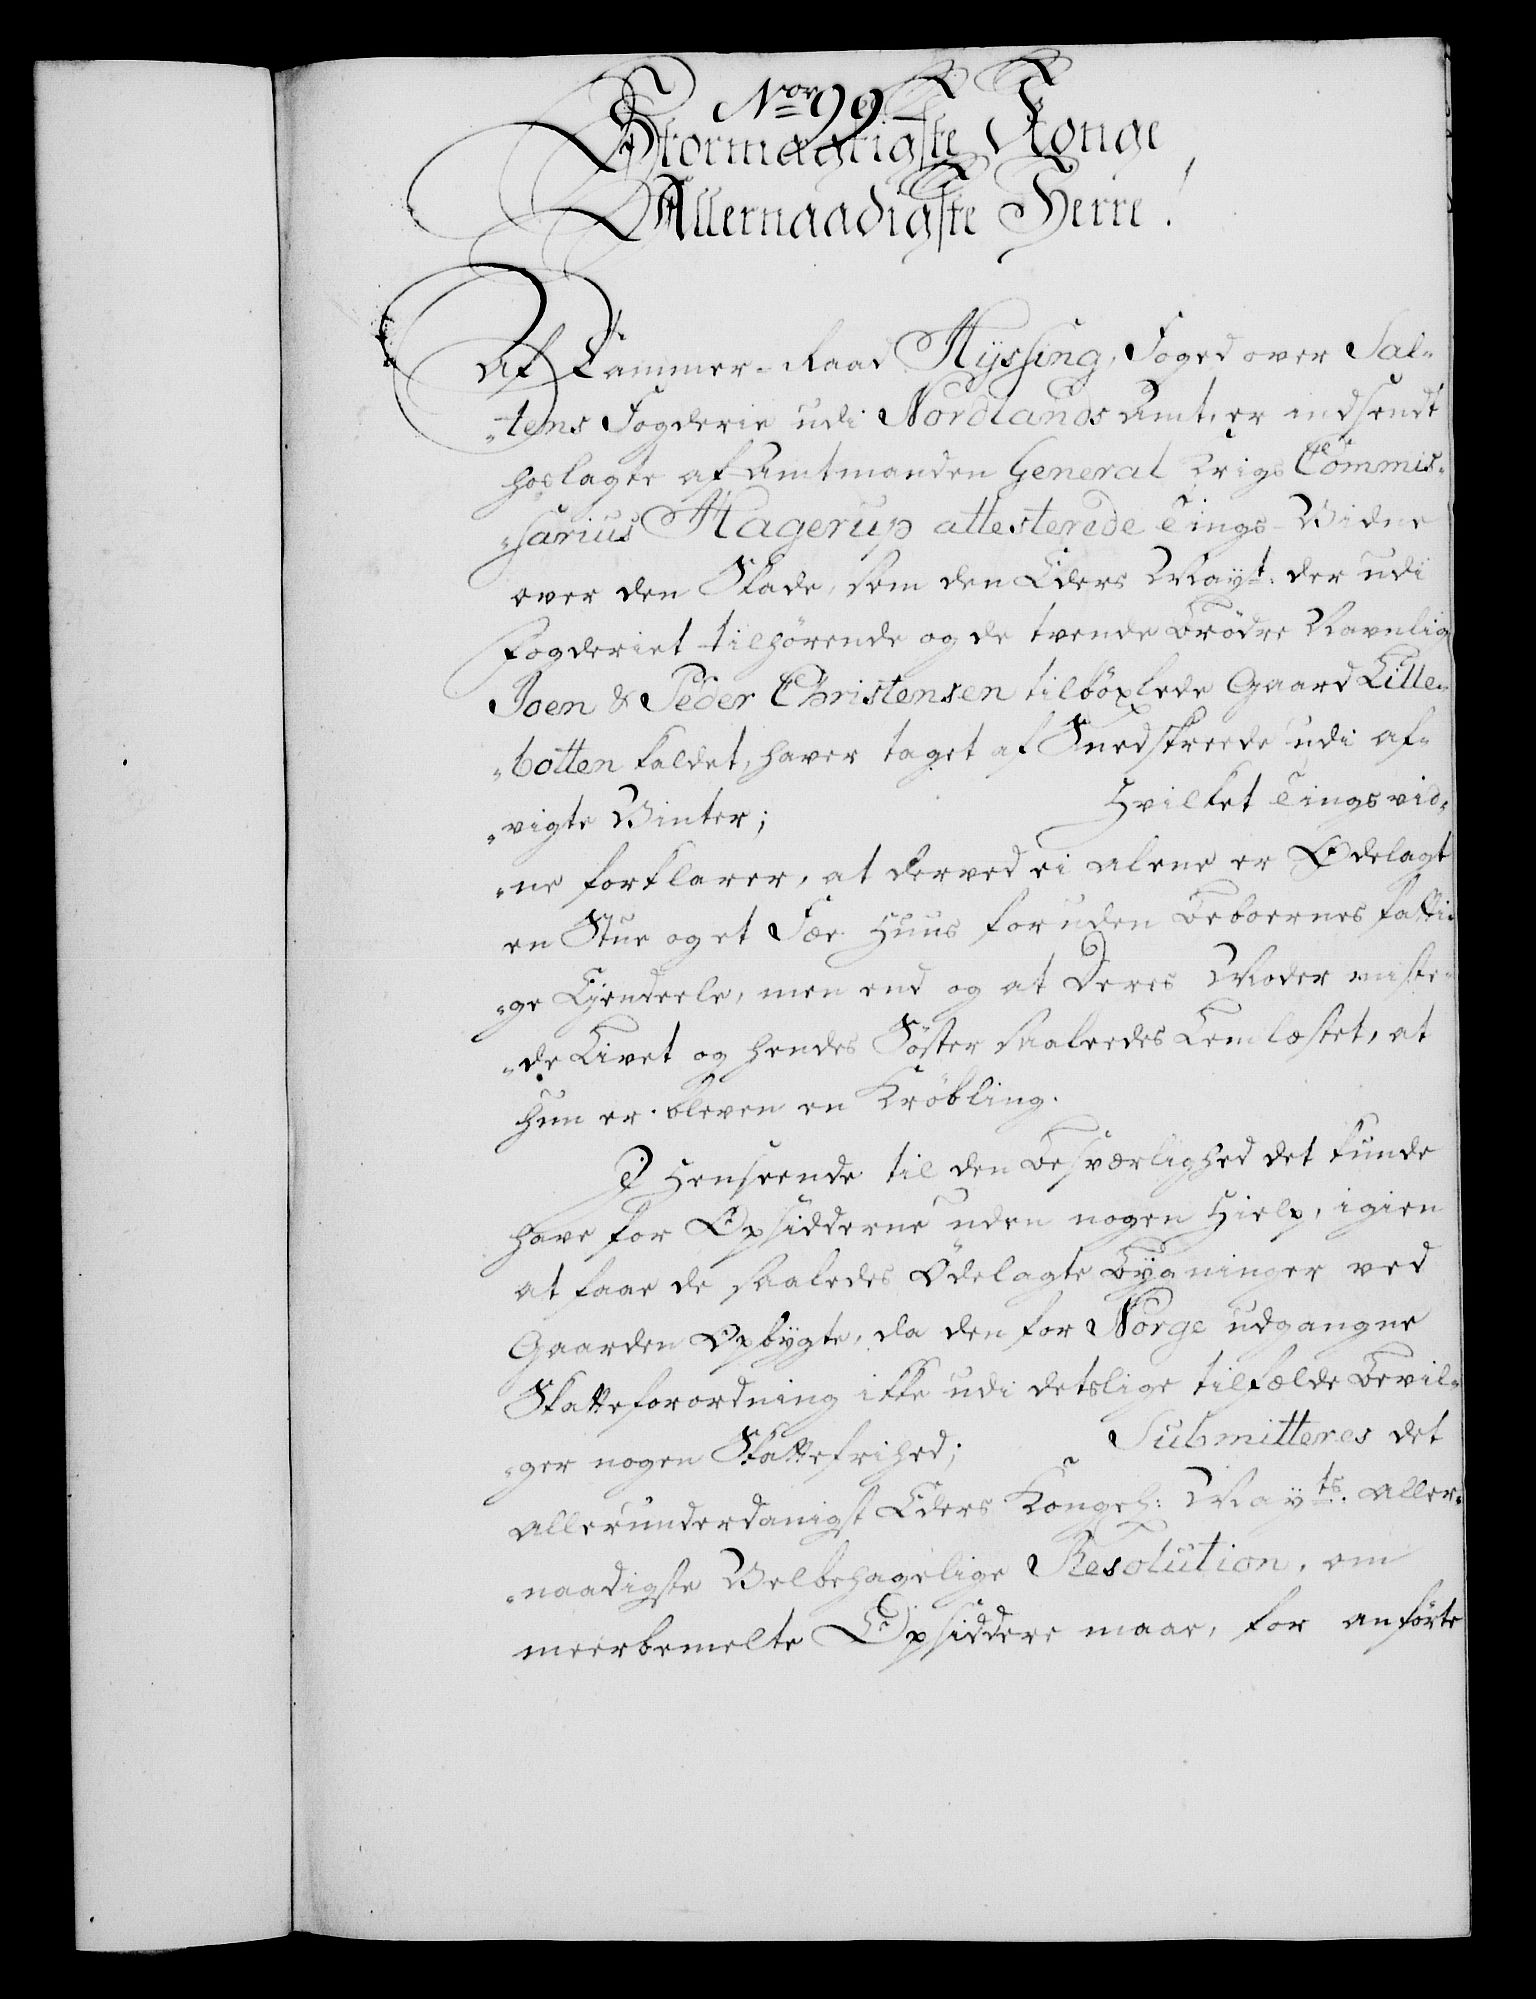 Nor 99
Stormægtigste Konge
Allernaadigste Herre!
Af Kammer-Raad Hÿssing, Foged over Sal-
-tens Fogderie udi Nordlands Amt, er indsendt
hoslagte af Amtmanden General Krigs Commis-
-sarius Hagerup attesterede Tings-Vidne
over den Skade, som den Eders Mayt: der udi
Fogderiet tilhørende og de tvende Brödre Navnlig
Joen & Peder Christensen tilböxlede Gaard Lille-
-botten kaldet, haver taget af Sneeskreede udi af-
-vigte Vinter; Hvilket Tingsvid-
-ne forklarer, at derved ei alene er Ödelagt
en Stue og et Fæe Huus foruden Beboernes fatti-
-ge Ejendeele, men end og at Deres Moder miste-
-de Livet og hendes Söster saaleedes Lemlæstet, at
hun er bleven en Kröbling.
I Henseende til den Besværlighed det kunde
have for Opsidderne uden nogen Hielp, igien
at faae de saaledes Ödelagte Bÿgninger ved
Gaarden Opbÿgte, da den for Norge udgangne
Skatteforordning ikke udi detslige tilfælde Bevil-
-ger nogen Skattefrihed; Submitteres det
allerunderdanigst Eders Kongel: Mayts. aller-
-naadigste Velbehagelige Resolution, om
meerbemelte Opsiddere maae, for anförte